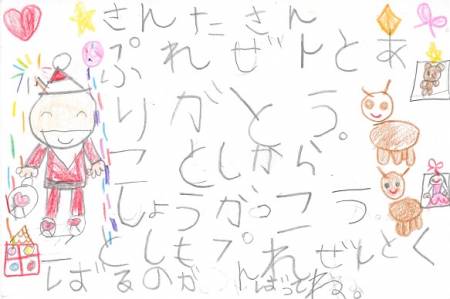 さんたさん
ぷれぜんトとあ
りがとう。
ことしから
しょうがっこう
ことしもプれぜんとく
ばるのがんばってね。